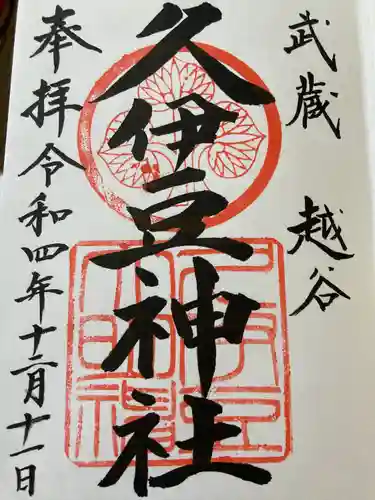 武蔵 越谷
久伊豆神社
奉拝 令和四年十二月十一日